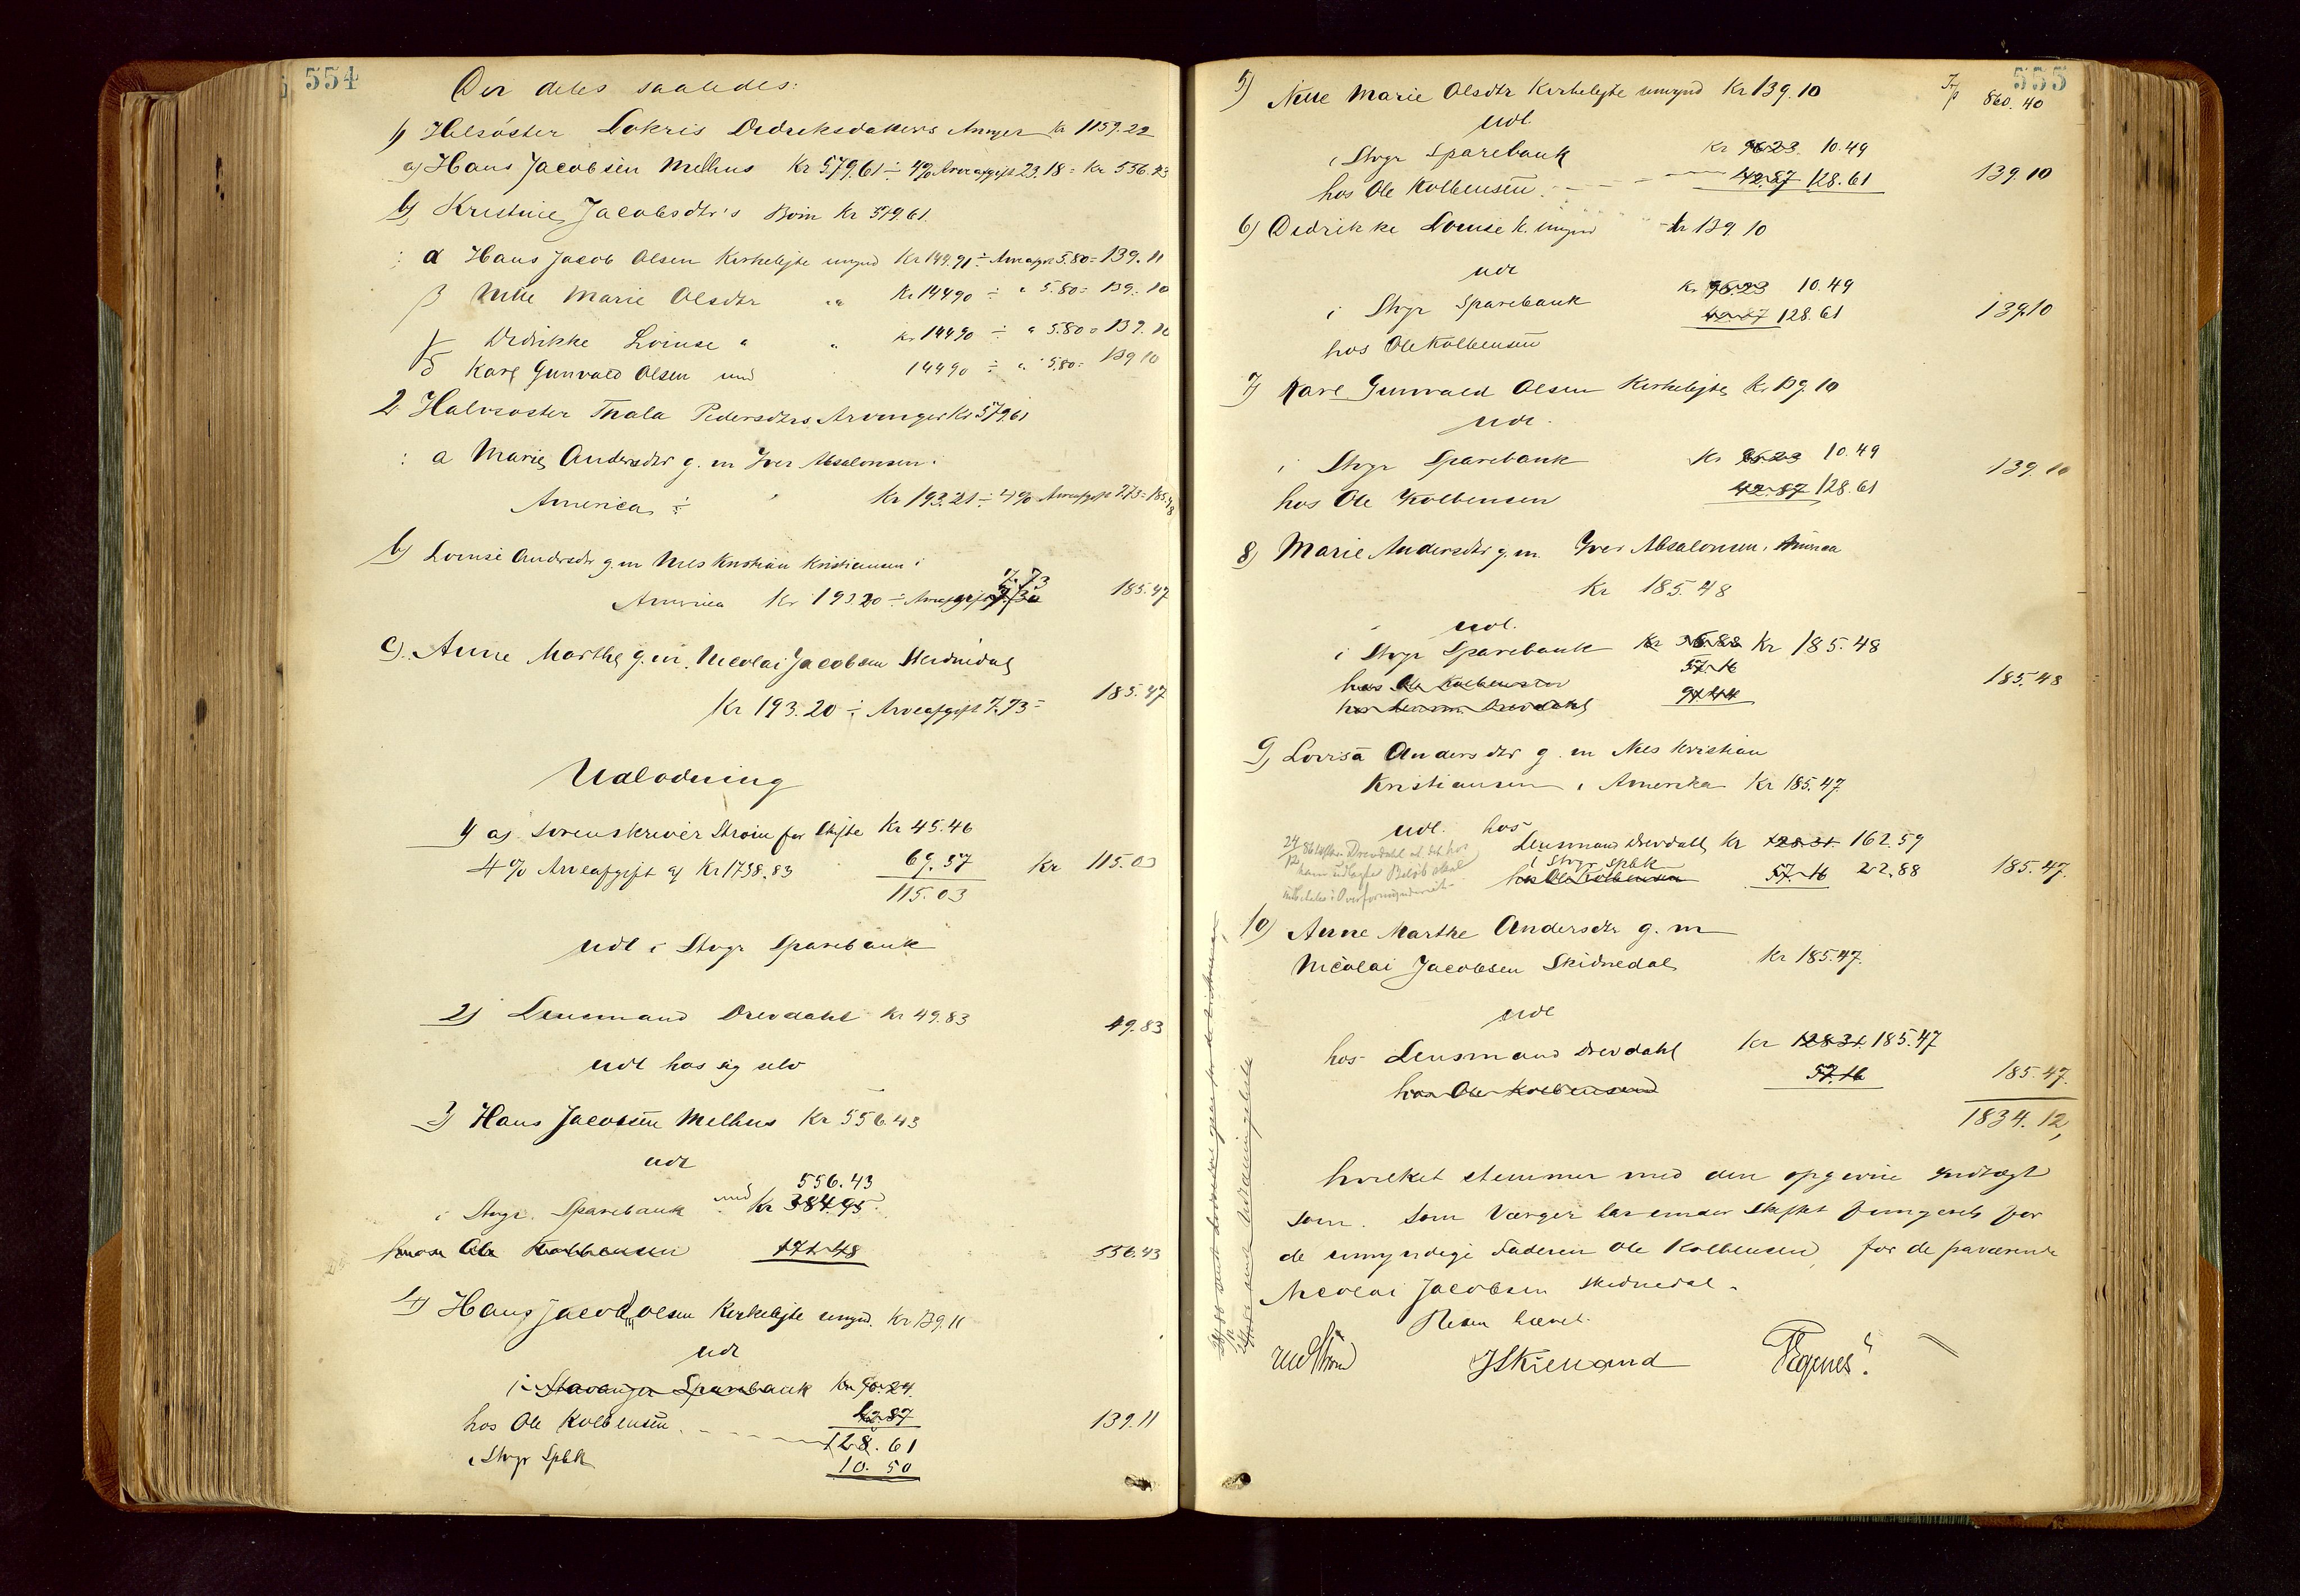 554
Der deles saaledes:
1) Helsøster Lokris Dedreksdatters Arvinger Kr 1159.22
a) Hans Jacobsen Melhus Kr 579.61 ÷ 4% Arveafgift 23.18 = Kr 556.43
b) Kristine Jacobsdtr's Børn Kr 579.61.
α Hans Jacob Olsen Kirkelejte umynd Kr 144.91 ÷ Arveafgift 5.80 = 139.11
β Nille Marie Olsdtr " " Kr 144 90 ÷ " 5.80 = 139.10
γ Didrikke Lovise " " Kr 144 90 ÷ " 5.80 = 139.10
δ Karl Gunvald Olsen umd 144 90 ÷ " 5.80 = 139 10
2 Halvsøster Thala Pedersdtrs Arvinger Kr 579.61
a Marie Andersdtr g. m Iver Absalonsen i
America ÷ Kr 193.21 ÷ 4% Arveafgift 7.73 = 185.48
b) Lovise Andersdtr g. m Niels Kristian Kristiansen i
7.73
America Kr 193.20 ÷ Arveafgift 185.47
c) Anne Marthe g. m. Nicolai Jacobsen Skidnedal
Kr 193.20 ÷ Arveafgift 7.73 = 185.47
Udlodning
1) a) Sorenskriver Strøm for Skifte Kr 45.46
4% Arveafgift af Kr 1738.83 69.57 Kr 115.03
115.03
udl i Stvgr Sparebank
2) Lensmand Drevdahl Kr 49.83 49.83
udl hos sig selv
3) Hans Jacobsen Melhus Kr 556.43
udl
556.43
i Stvgr. Sparebank med Kr 384.95
hos Ole Kolbensen 171.48 556.43
4) Hans Jacob Olsen Kirkelejte umynd. Kr 139.11
udl
i Stavanger Sparebank Kr 96.24
hos Ole Kolbensen 42.87 139.11
128.61
i Stvgr Spbk 10.50
555
5) Nille Marie Olsdtr Kirkelejte umynd Kr 139.10 Trp 860.40
udl.
i Stvgr Sparebank Kr 96.23 10.49
hos Ole Kolbensen 42.87 128.61 139.10
6) Dedrikke Lovise K. umynd Kr 139.10
udl
i Stvgr Sparebank Kr 96.23 10.49
42.87 128.61 139.10
hos Ole Kolbensen
7) Karl Gunvald Olsen Kirkelejte Kr 139.10
udl.
i Stvgr Sparebank Kr 96.23 10.49
hos Ole Kolbensen 42.87 128.61 139.10
8) Marie Andersdtr g. m. Iver Absalonsen, America
Kr 185.48
udl.
i Stvgr Sparebank Kr 36.88 Kr 185.48
hos Ole Kolbensen 57.16 185.48
hos Lensm. Drevdahl 91.44
9) Lovisa Andersdtr g. m Niels Kristian
Kristiansen i Amerika Kr 185.47
udl. hos Lensmand Drevdahl Kr 128.31 162.59
i Stvgr Spbk
hos Ole Kolbensen 57.16 22.88 185.47.
10) Anne Marthe Andersdtr g. m
Nicolai Jacobsen Skidnedal Kr 185.47.
udl
hos Lensmand Drevdahl Kr 128.31 185.47
hos Ole Kolbensen 57.16 185.47.
1834.12,
hvilket stemmer med den opgivne Indtægt
Som. Som Værger har under Skiftet fungeret for
de umyndige Faderen Ole Kolbensen, for de fraværende
Nicolai Jacobsen Skidnedal.
Retten hævet.